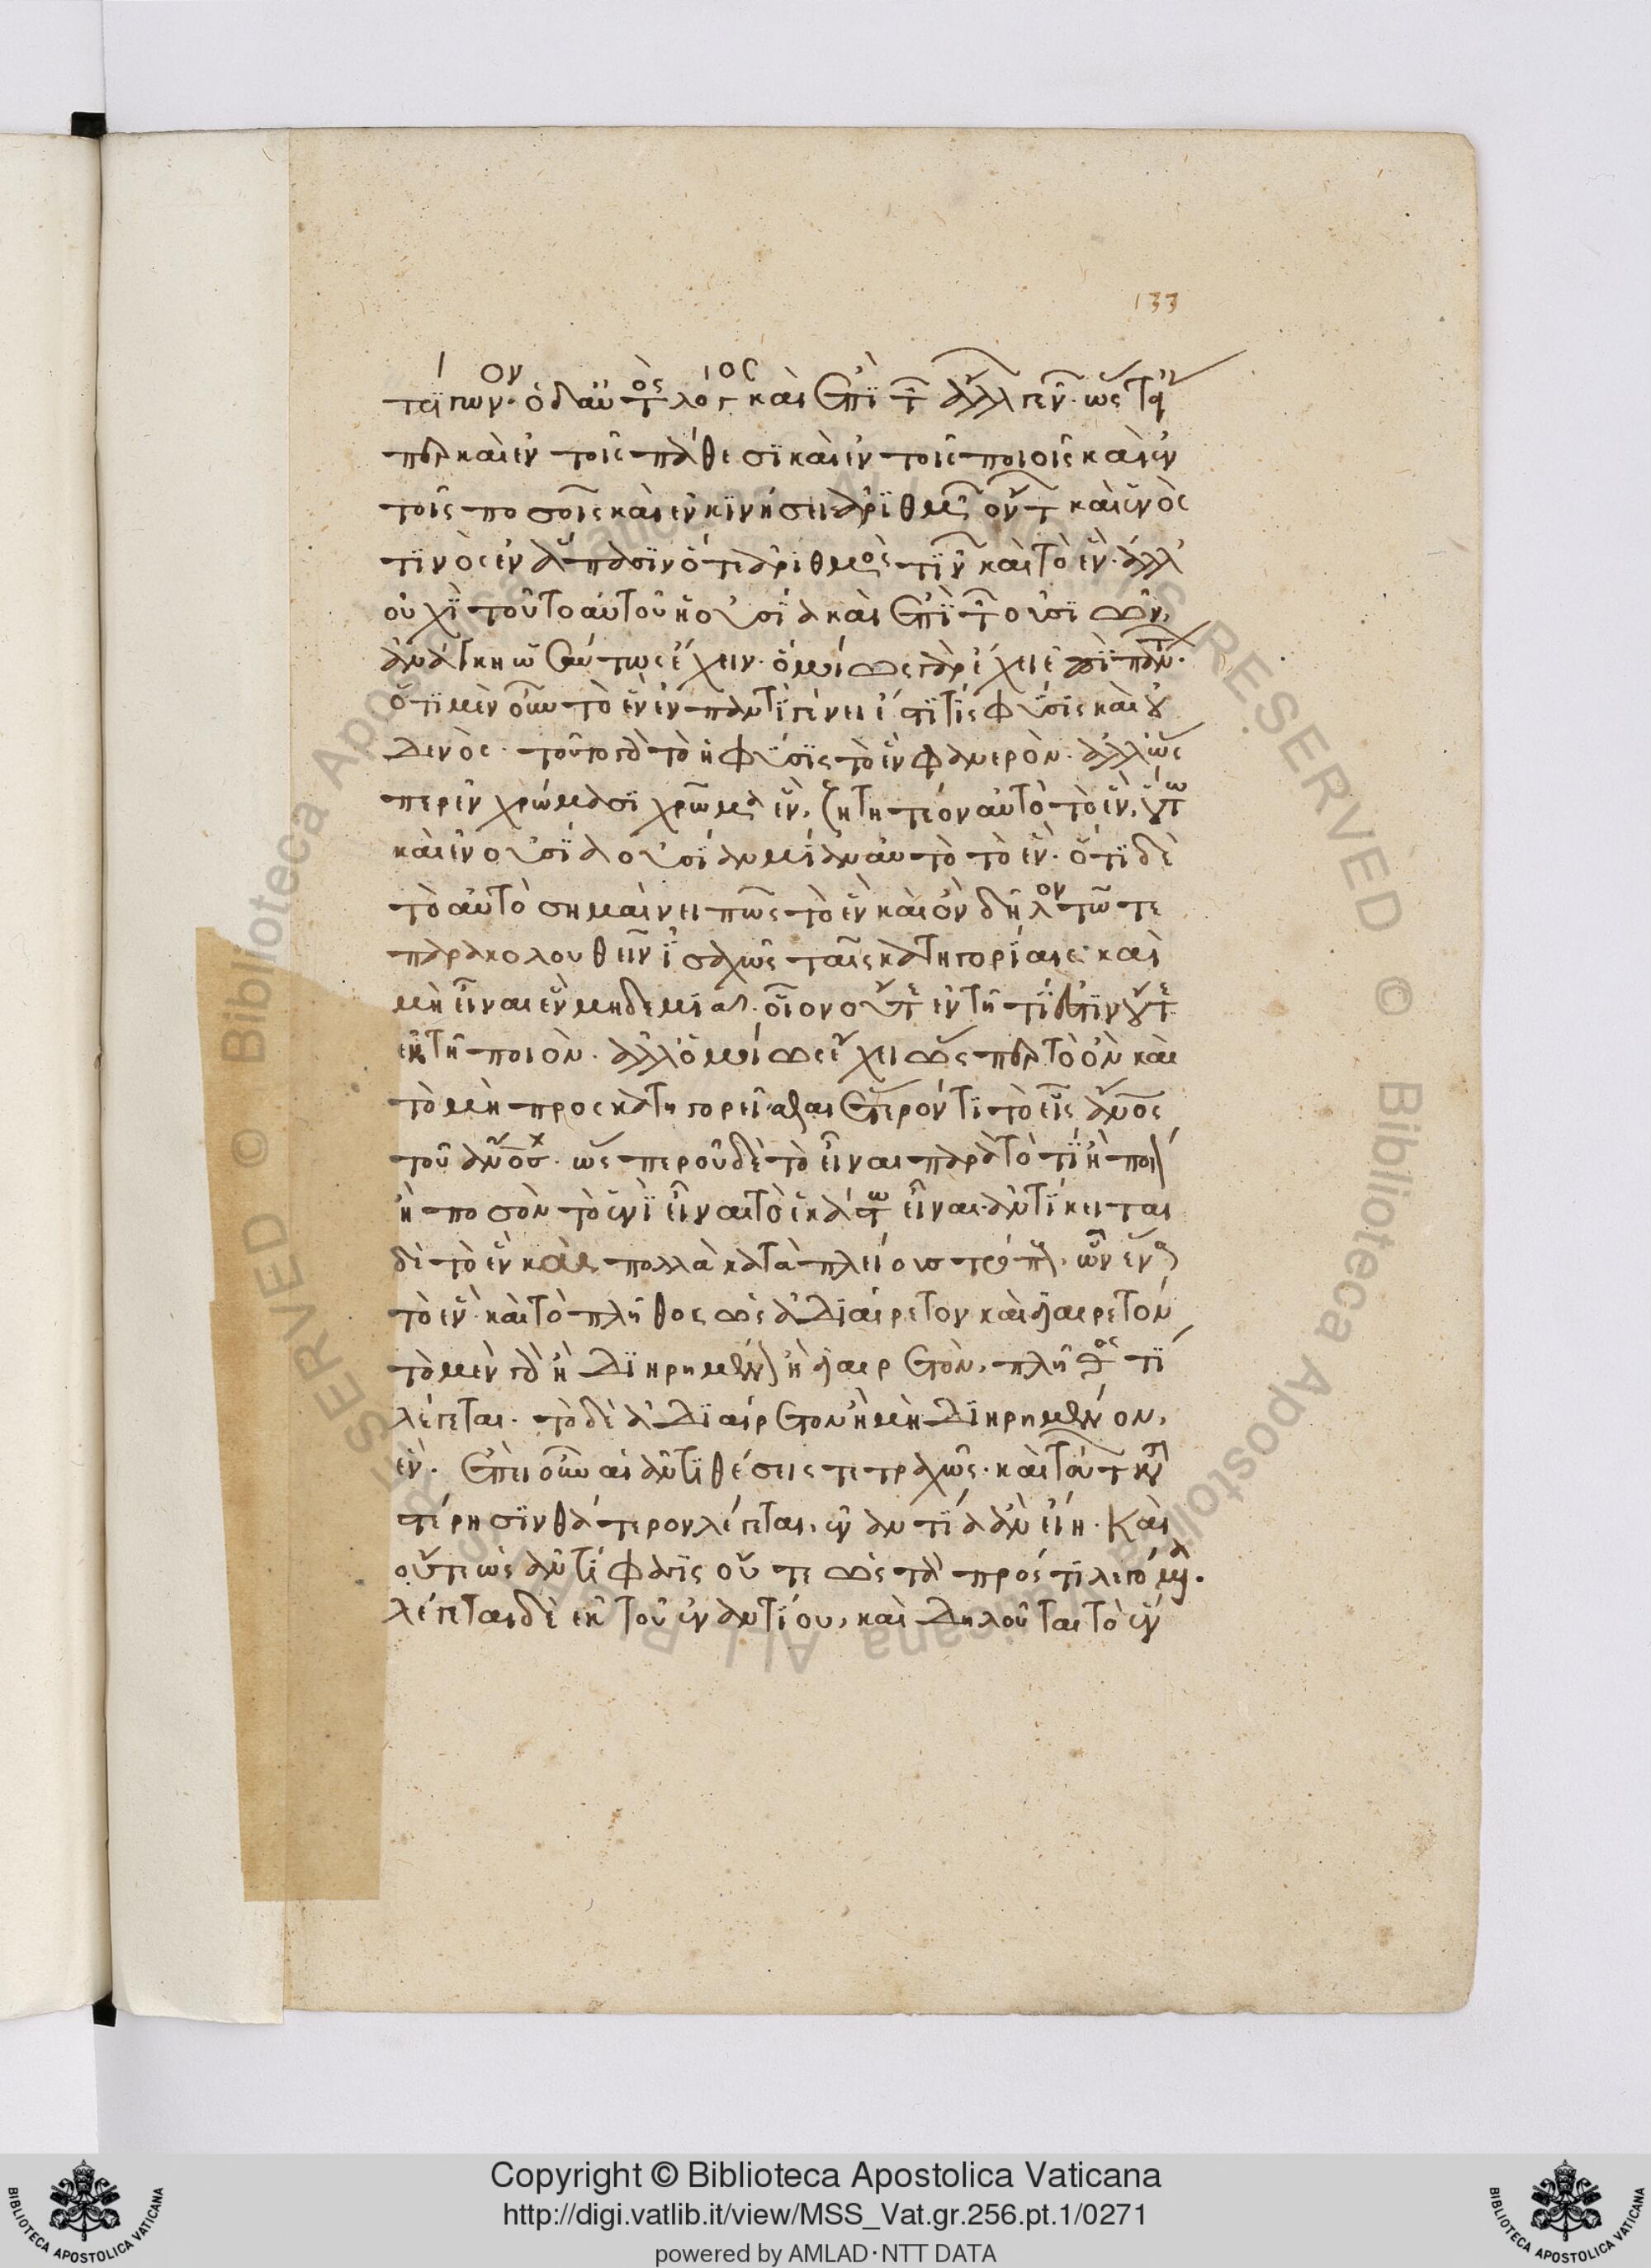 133
τρίγωνον· ὁ δ' αὐτὸς λόγος καὶ ἐπὶ τῶν ἄλλων γενῶν· ὥστ' εἴ
περ καὶ ἐν τοῖς πάθεσι καὶ ἐν τοῖς ποιοῖς καὶ ἐν
τοῖς ποσοῖς καὶ ἐν κινήσει ἀριθμῶν ὄντων καὶ ἑνός
τινος ἐν ἅπασιν ὅ τε ἀριθμὸς τινῶν καὶ τὸ ἕν· ἀλλ'
οὐχὶ τοῦτο αὐτοῦ ἡ οὐσία καὶ ἐπὶ τῶν οὐσιῶν,
ἀνάγκη ὡσαύτως ἔχειν· ὁμοίως γὰρ ἔχει ἐπὶ πάντων.
ὅτι μὲν οὖν τὸ ἓν ἐν παντὶ γένει ἐστί τις φύσις καὶ οὐ
δενὸς τοῦτό γ' αὐτὸ ἡ φύσις τὸ ἓν φανερόν· ἀλλ' ὥς
περ ἐν χρώμασι χρῶμα ἓν, ζητητέον αὐτὸ τὸ ἕν, οὕτω
καὶ ἐν οὐσίᾳ οὐσίαν μίαν αὐτὸ τὸ ἕν· ὅτι δὲ
τὸ αὐτὸ σημαίνει πως τὸ ἓν καὶ ὂν δῆλον τῷ τε
παρακολουθεῖν ἰσαχῶς ταῖς κατηγορίαις καὶ
μὴ εἶναι ἐν μηδεμιᾷ· οἷον οὔτ' ἐν τῇ τί ἐστιν οὔτ'
ἐν τῇ ποιόν· ἀλλ' ὁμοίως ἔχει ὥσπερ τὸ ὂν καὶ
τὸ μὴ προσκατηγορεῖσθαι ἕτερόν τι τὸ εἷς ἄνθρωπος
τοῦ ἄνθρωπος· ὥσπερ οὐδὲ τὸ εἶναι παρὰ τὸ τὶ ἢ ποιὸν
ἢ ποσὸν τὸ ἑνὶ εἶναι τὸ ἑκάστῳ εἶναι· ἀντίκειται
δὲ τὸ ἓν καὶ πολλὰ κατὰ πλείους τρόπους· ὧν ἕνα
τὸ ἓν καὶ τὸ πλῆθος ὡς ἀδιαίρετον καὶ διαιρετόν
τὸ μὲν γὰρ ἢ διῃρημένον ἢ διαιρετὸν, πλῆθός τι
λέγεται· τὸ δὲ ἀδιαίρετον ἢ μὴ διῃρημένον,
ἕν. ἐπεὶ οὖν αἱ ἀντιθέσεις τετραχῶς· καὶ τούτων κατὰ
στέρησιν θάτερον λέγεται, ἐναντία ἂν εἴη· καὶ
οὔτε ὡς ἀντίφασις οὔτε ὡς τὰ πρός τι λεγόμενα.
λέγεται δὲ ἐκ τοῦ ἐναντίου, καὶ δηλοῦται τὸ ἓν
Copyright © Biblioteca Apostolica Vaticana
http://digi.vatlib.it/view/MSS_Vat.gr.256.pt.1/0271
powered by AMLAD·NTT DATA
BIBLIOTECA APOSTOLICA VATICANA
BIBLIOTECA APOSTOLICA VATICANA